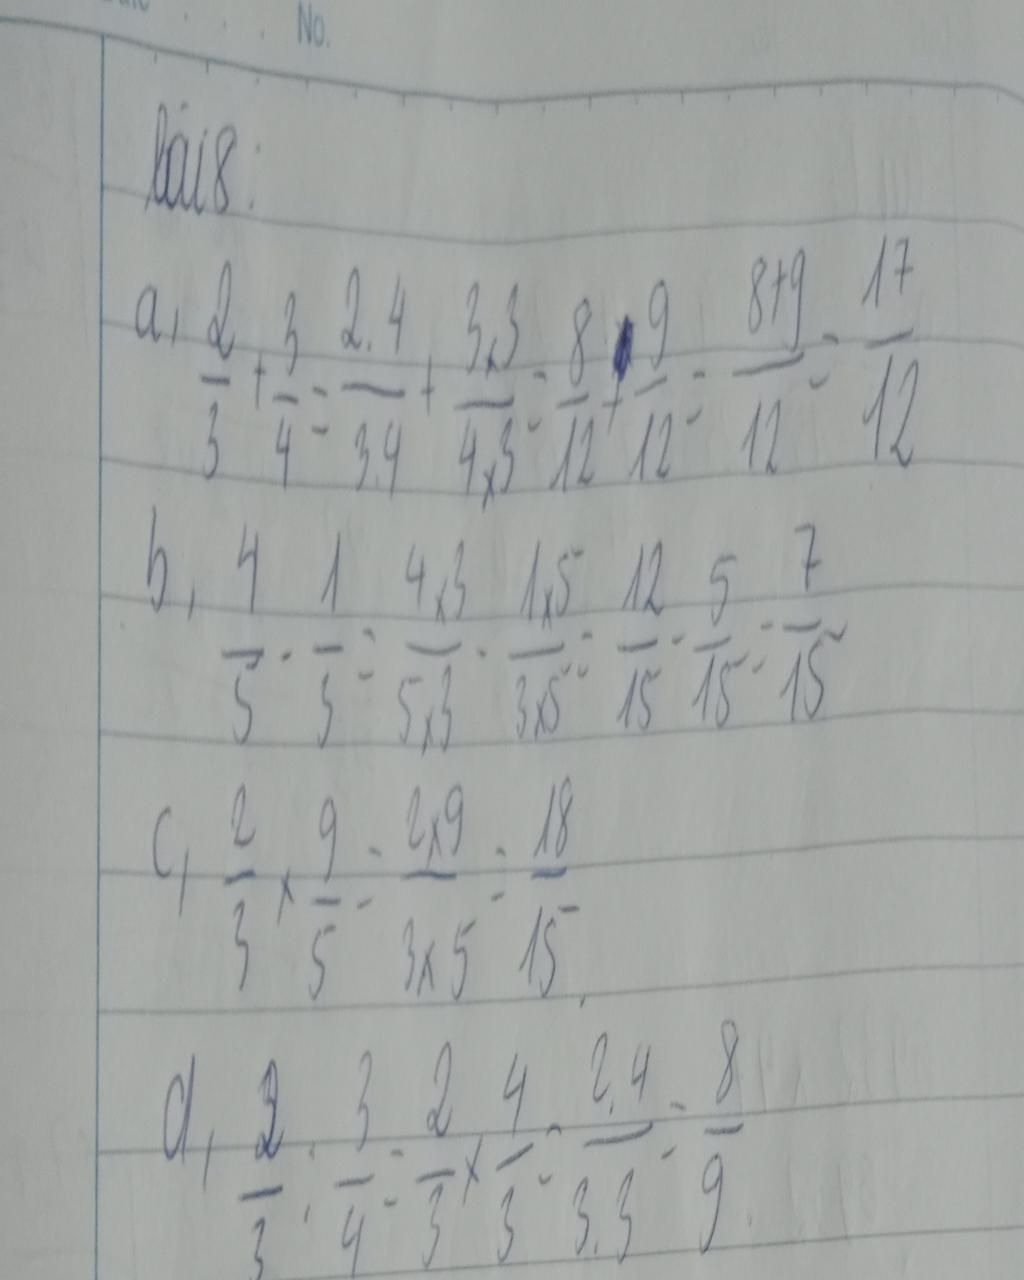 No.
bài 8:
a, 2/3 + 3/4 = 2.4/3.4 + 3x3/4x3 = 8/12 + 9/12 = 8+9/12 = 17/12
b, 4/5 - 1/3 = 4x3/5x3 - 1x5/3x5 = 12/15 - 5/15 = 7/15
c, 2/3 x 9/5 = 2x9/3x5 = 18/15.
d, 2/3 : 3/4 = 2/3 x 4/3 = 2.4/3.3 = 8/9.